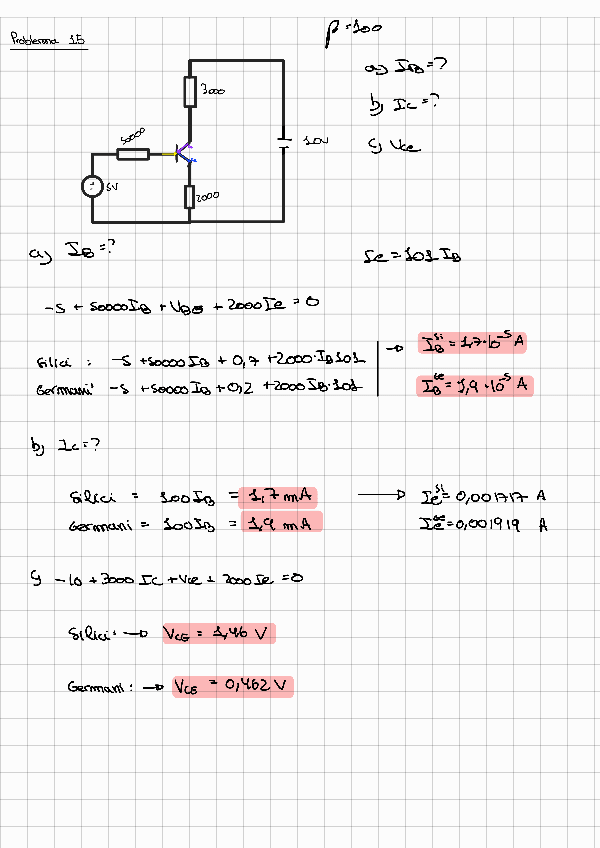 Problema 15
β=100
a) IB=?
b) Ic=?
c) Vce
3000
50000
5V
10V
2000
a) IB=?
Ie=101 IB
-5 + 50000IB + VBE + 2000Ie = 0
Silici : -5 +50000IB + 0,7 +2000·IB101
Germani: -5 +50000IB+0,2 +2000IB·101
→ IB^Si = 1,7·10^-5 A
IB^Ge = 1,9·10^-5 A
b) Ic=?
Silici = 100IB = 1,7 mA → Ie^Si = 0,001717 A
Germani = 100IB = 1,9 mA Ie^Ge = 0,001919 A
c) -10 + 3000 Ic +Vce + 2000Ie =0
Silici: → VCE = 1,46 V
Germani: → VCE = 0,462 V